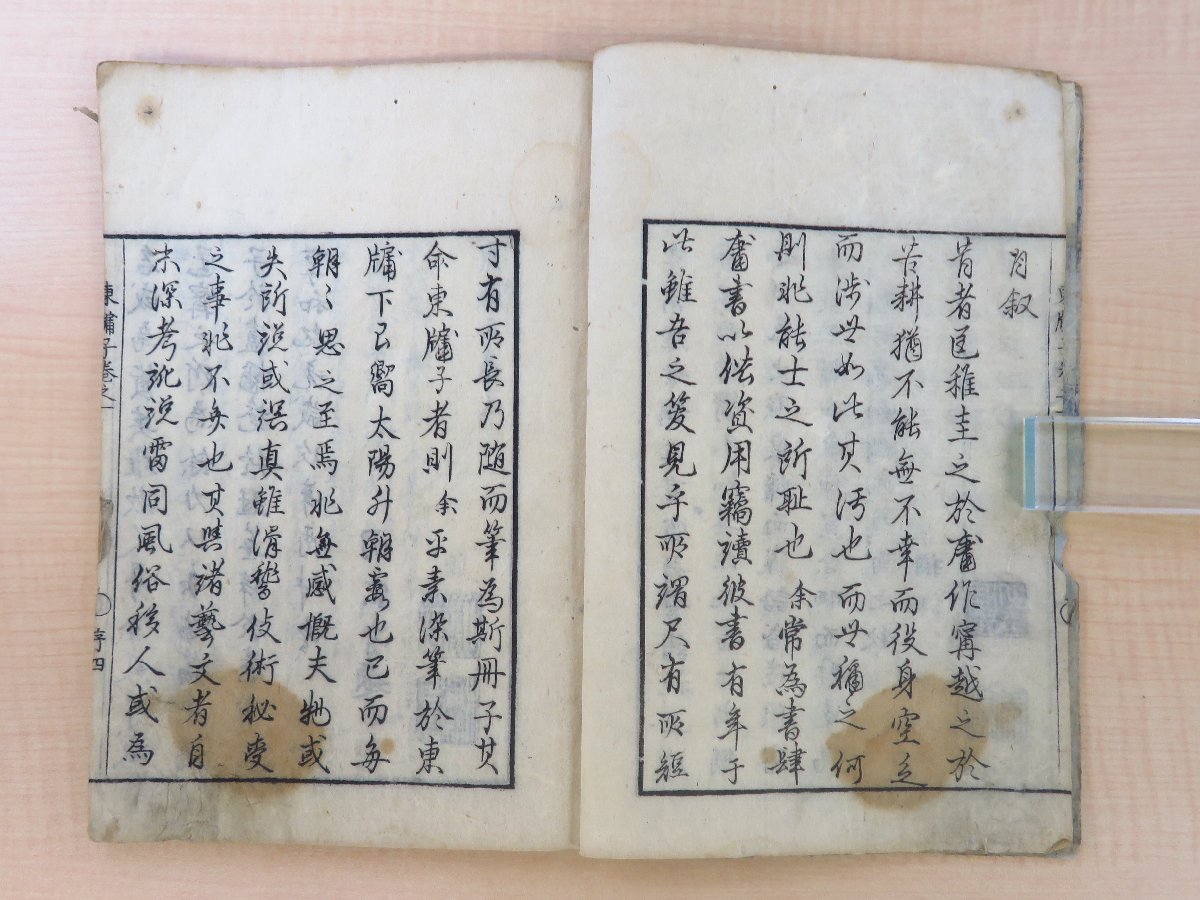 自叙
昔者匡稚圭之於庸作甯越之於
苦耕猶不能無不幸而役身空乏
而渉世如此其汚也而世稱之何
則非能士之所耻也余常為書肆
庸書以供資用竊讀彼書有年于
此雖吾之管見乎所謂尺有所短
寸有所長乃随而筆為斯冊子其
命東牖子者則余平素染筆於東
牖下已嚮太陽升朝霞也已而毎
朝〻思之至焉非無感慨夫物或
失所説或誤真雖滑𥡴伎術秘变
之事非不無也其与諸藝文者自
未深考訛説雷同風俗移人或為
東牖子巻之一
序四